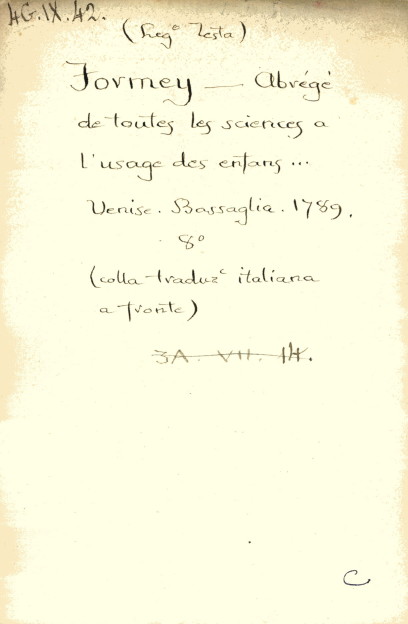 4G.IX.42.
(Leg.e Testa)
Formey — Abrégé
de toutes les sciences a
l'usage des enfans...
Venise. Bassaglia. 1789.
8°
(colla traduz.e italiana
a fronte)
3A. VII. 14.
C